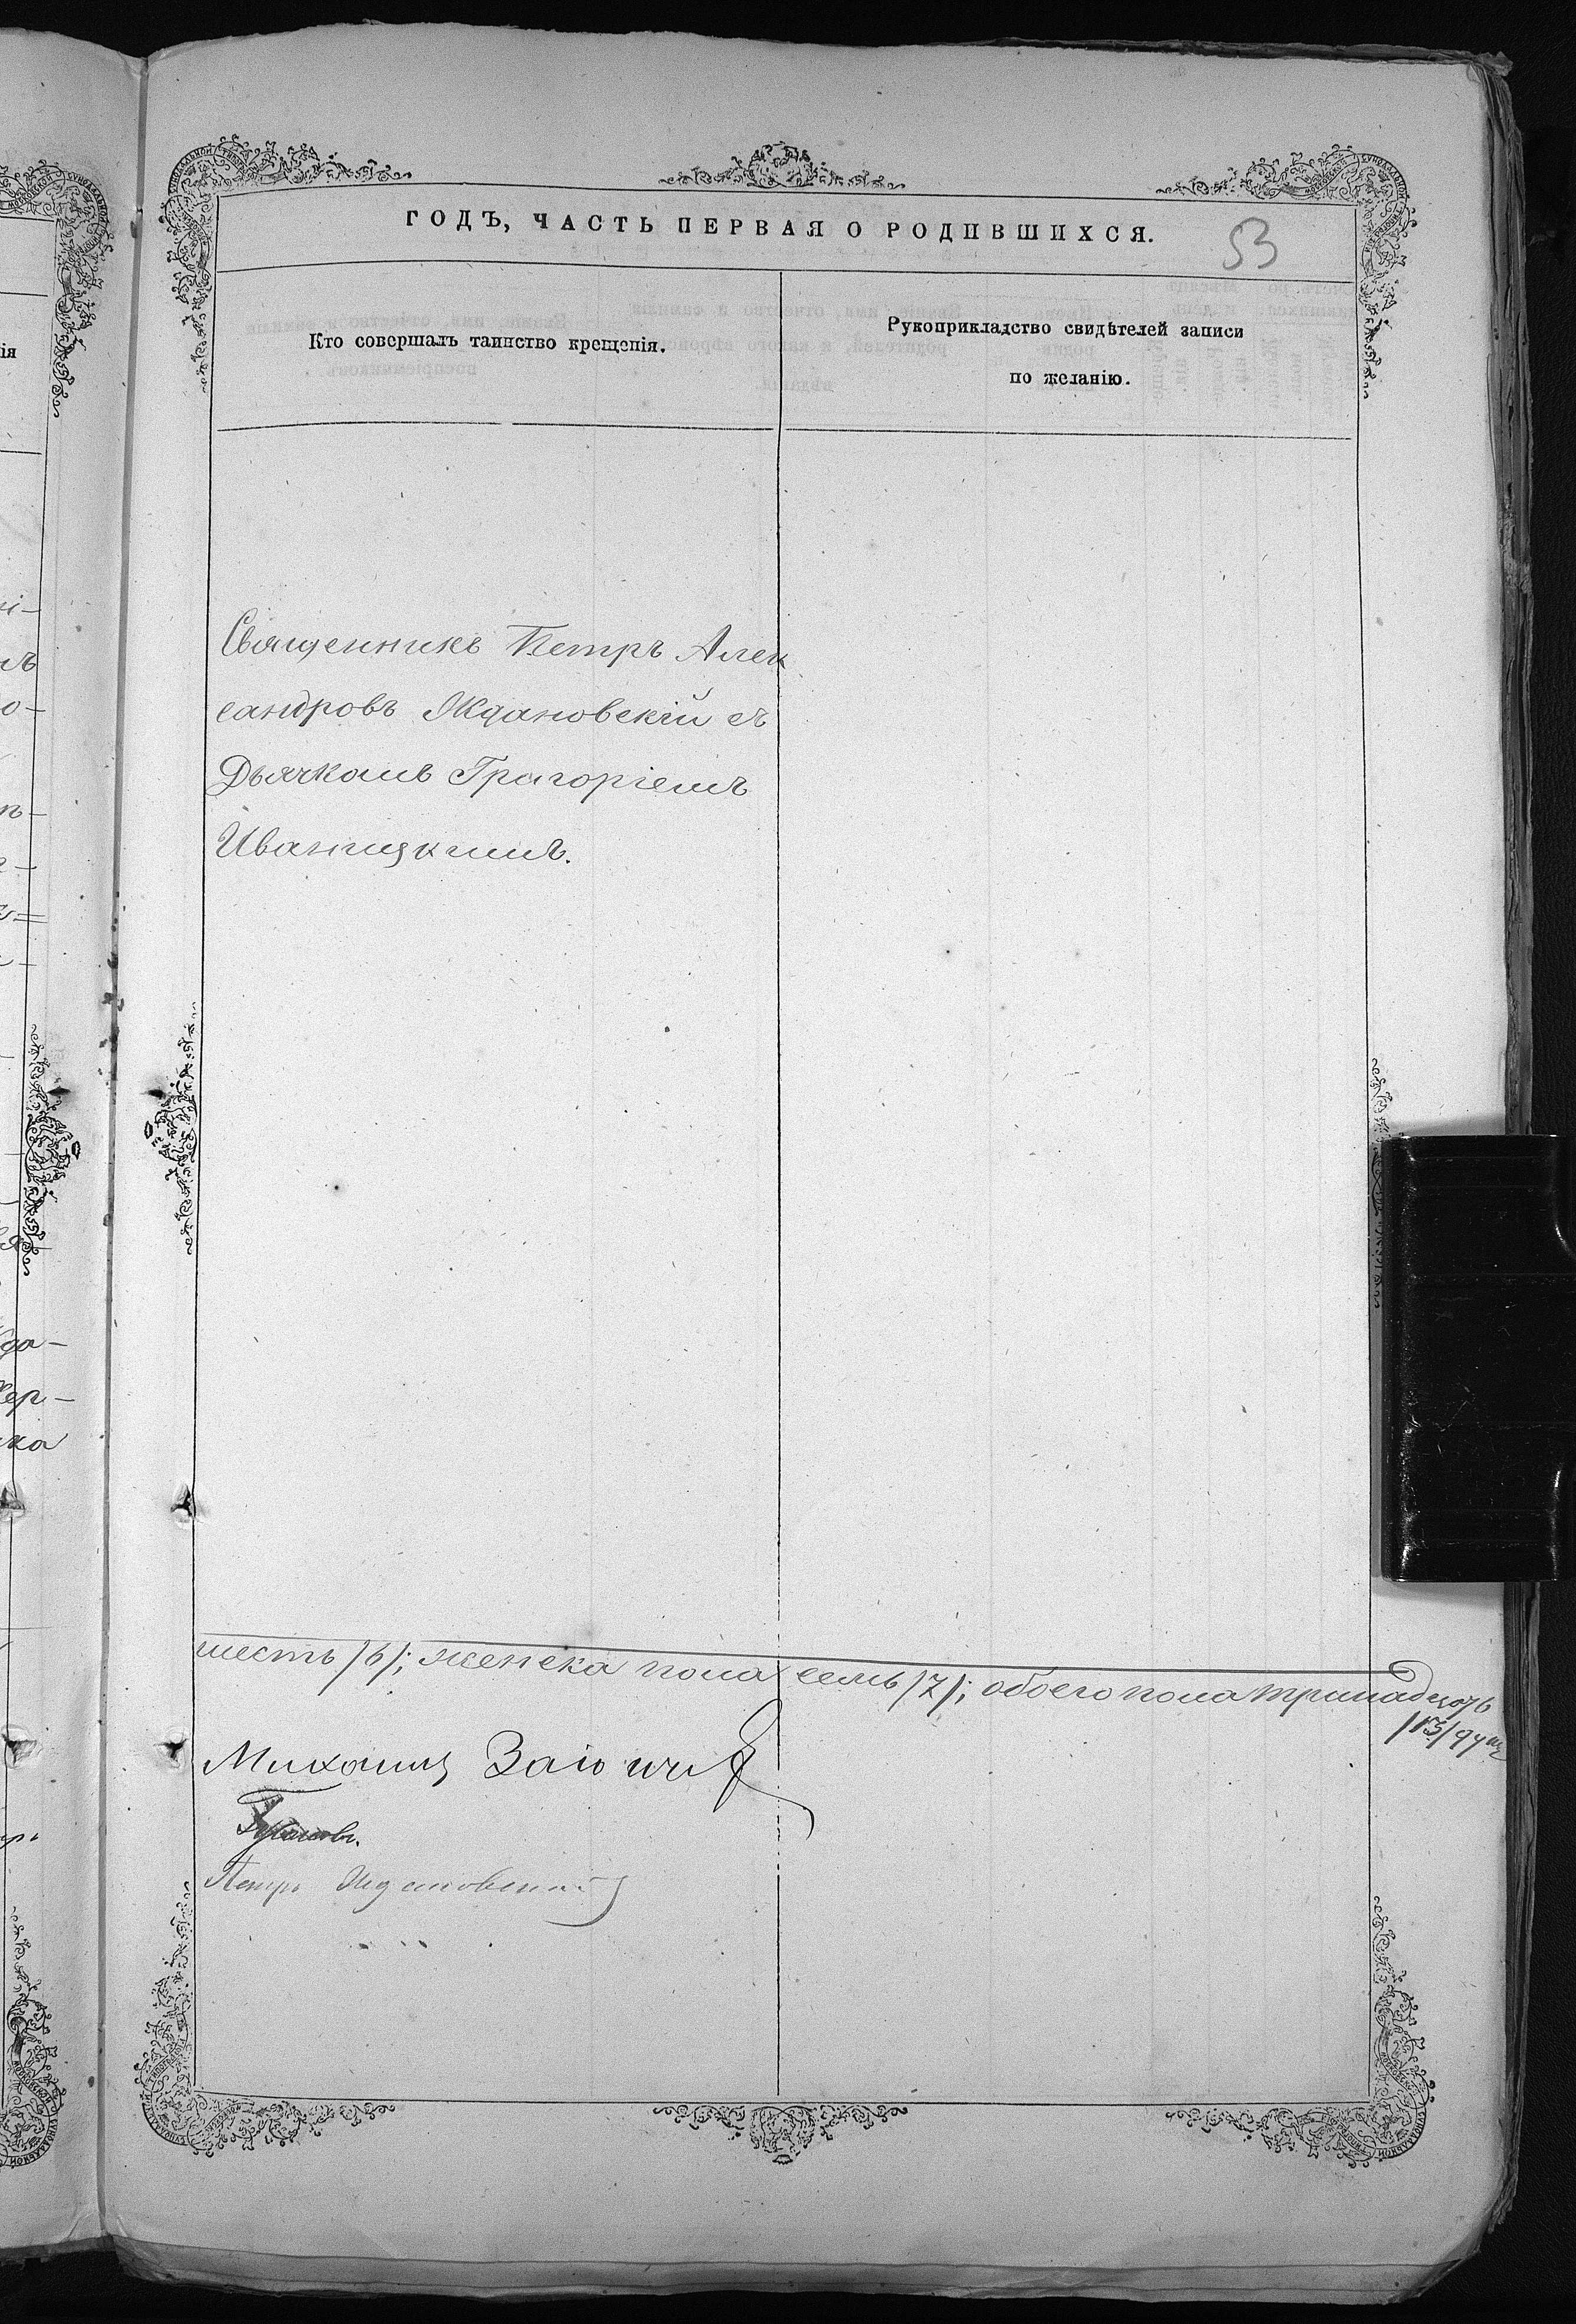 ГОДЪ, ЧАСТЬ ПЕРВАЯ О РОДИВШИХСЯ.
53
Кто совершалъ таинство крещенія.
Рукоприкладство свидѣтелей записи
по желанію.
Священникъ Петръ Алек
сандровъ Ждановскій съ
Дьячкомъ Григоріемъ
Иваницкимъ.
шесть /6/; женска пола семь /7/; обоего пола тринадцать
/13/ душъ
Михаилъ
Петръ Ждановскій